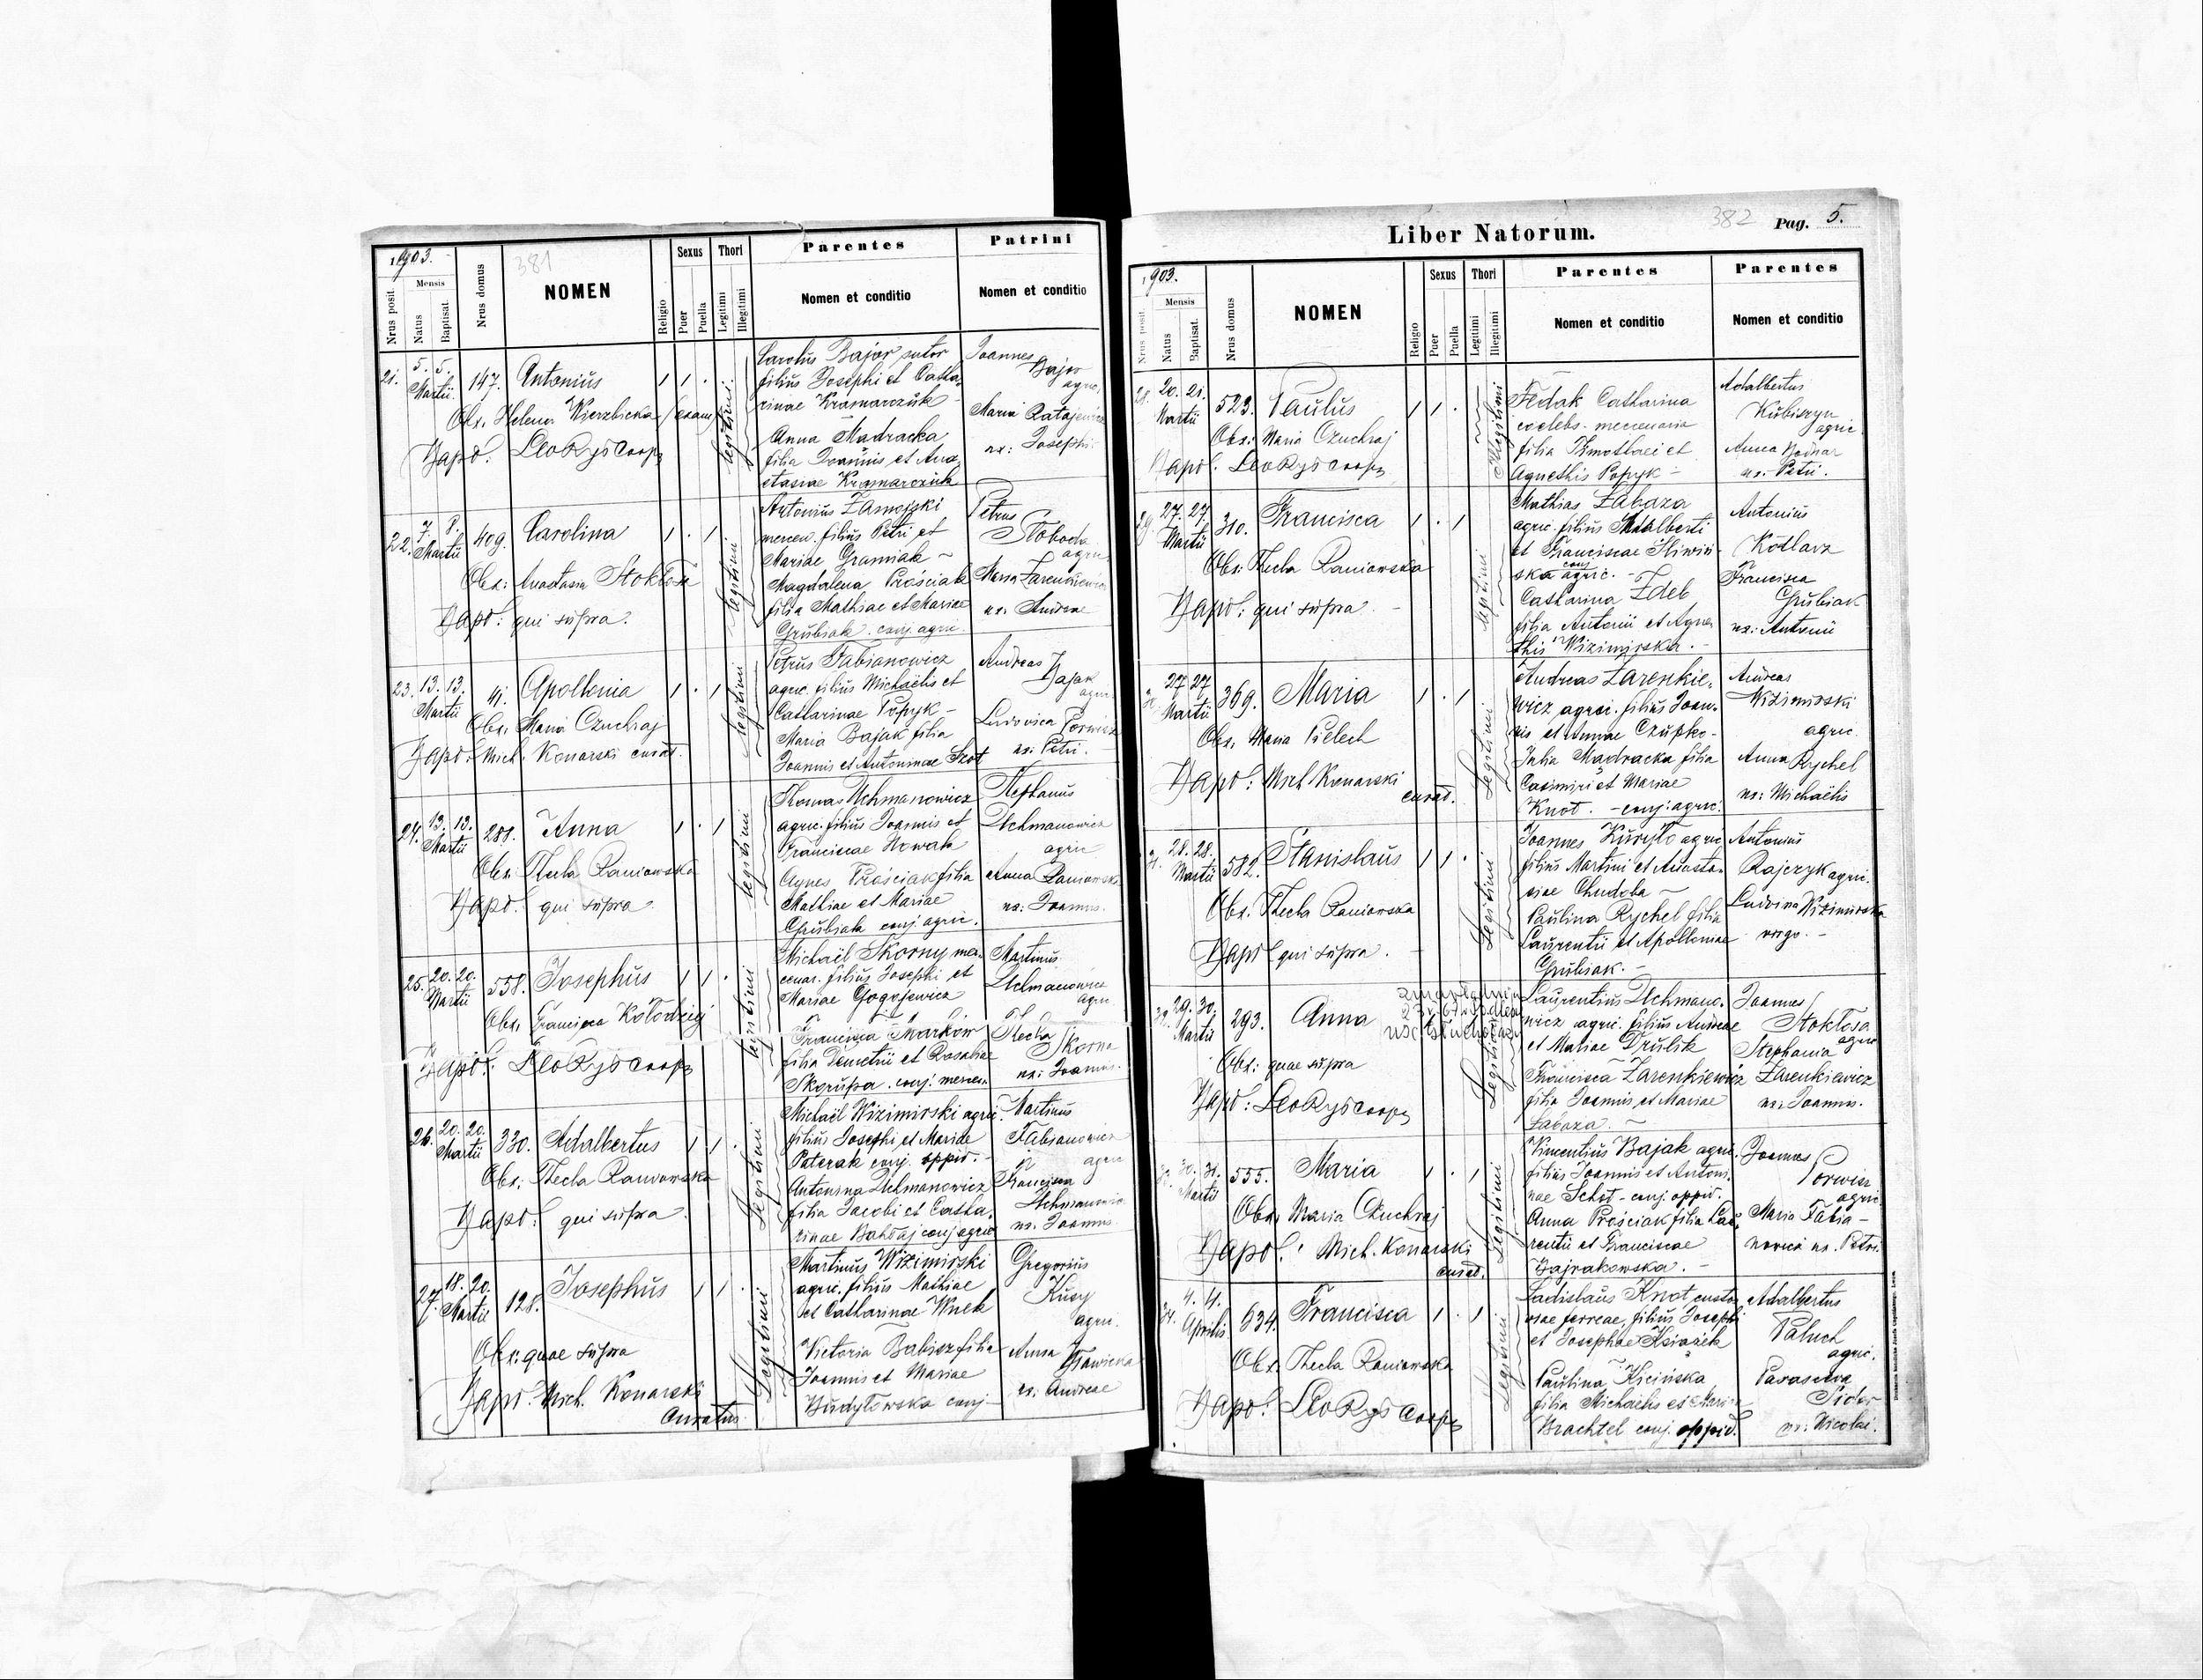 1903.
381
Nrus posit.
Mensis
Natus
Baptisat.
Nrus domus
NOMEN
Religio
Sexus
Puer
Puella
Thori
Legitimi
Illegitimi
Parentes
Nomen et conditio
Patrini
Nomen et conditio
21. 5. 5. Martii 147. Antonius
Obs. Helena Wierzbicka (exam)
Bapt. Leo Ryś Coop
legitimi
Carolus Bajor sutor
filius Josephi et Catha
rinae Kramarczuk
Anna Madracka
filia Joannis et Ana
stasiae Kramarczuk
Joannes
Bajor
agric.
Maria Ratajewicz
ux: Josephi
22. 7. 8. Martii 409. Carolina
Obs: Anastasia Stokłosa
Bapt: qui supra.
legitimi
Antonius Zamojski
mercen. filius Petri et
Mariae Granniak ~
Magdalena Prościak
filia Mathiae et Mariae
Grubiak. conj. agric.
Petrus
Słoboda
agric.
Maria Zarenkiewicz
ux: Andreae
23. 13. 13. Martii 41. Apollonia
Obs. Maria Czuchraj
Bapt. Mich. Konarski curat.
legitimi
Petrus Fabianowicz
agric. filius Michaëlis et
Catharinae Popyk -
Maria Bajak filia
Joannis et Antoninae Szot
Andreas
Bajak
agric.
Ludovica Porwisz
ux: Petri.
24. 13. 13. Martii 288. Anna
Obs. Thecla Raniowska
Bapt. qui supra.
legitimi
Thomas Uchmanowicz
agric. filius Joannis et
Franciscae Nowak
Agnes Prościak filia
Mathiae et Mariae
Grubiak conj. agric.
Stephanus
Uchmanowicz
agric
Anna Raniowska
ux: Joannis.
25. 20. 20. Martii 558. Josephus
Obs. Francisca Kołodziej
Bapt. Leo Ryś Coop
legitimi
Michaël Skorny mer
cenar. filius Josephi et
Mariae Gogojewicz
Francisca Markow
filia Demetrii et Rosaliae
Skorupa. conj. mercen.
Martinus
Uchmanowicz
agric
Thecla
Skorna
ux: Joannis.
26. 20. 20. Martii 330. Adalbertus
Obs: Thecla Raniowska
Bapt. qui supra.
Legitimi
Michaël Wizimirski agric.
filius Josephi et Mariae
Paterak conj. oppid. -
Antonina Uchmanowicz
filia Jacobi et Catha.
rinae Bahłaj conj agric
Martinus
Fabianowicz
agric
Francisca
Uchmanowicz
ux: Joannis
27. 18. 20. Martii 128. Josephus
Obs: quae supra
Bapt. Mich. Konarski
Curatus.
Legitimi
Martinus Wizimirski
agric. filius Mathiae
et Catharinae Wnek
Victoria Babisz filia
Joannis et Mariae
Budyłowska conj
Gregorius
Kusy
agric.
Anna
ux: Andreae
Liber Natorum.
382
Pag. 5.
1903.
Nrus posit.
Mensis
Natus
Baptisat.
Nrus domus
NOMEN
Religio
Sexus
Puer
Puella
Thori
Legitimi
Illegitimi
Parentes
Nomen et conditio
Parentes
Nomen et conditio
28. 20. 21. Martii 523. Paulus
Obs: Maria Czuchraj
Bapt. Leo Ryś Coop
Illegitimi
Fedak Catharina
coelebs. mercenaria
filia Timothaei et
Agnethis Popyk -
Adalbertus
Kubiszyn
agric.
Anna Bednar
ux. Petri.
29. 27. 27 Martii 310. Francisca
Obs: Thecla Raniowska
Bapt: qui supra.
legitimi
Mathias Łabaza
agric. filius Adalberti
et Franciscae Śliwiń-
ska conj agric. -
Catharina Zdeb
filia Antonii et Agne
this Wizimirska. -
Antonius
Kotlarz
Francisca
Grubiak
ux: Antonii
30. 27 27 Martii 369. Maria
Obs. Maria Pielech
Bapt: Mich Konarski
curat.
Legitimi
Andreas Zarenkie.
wicz agric. filius Joan.
nis et Annae Czupko-
Julia Madracka filia
Casimiri et Mariae
Knot. - conj: agric.
Andreas
Wizimirski
agric.
Anna Rychel
ux: Michaëlis
31. 28. 28. Martii 582. Stanislaus
Obs. Thecla Raniowska
Bapt qui supra.
Legitimi
Joannes Kuryło agric
filius Martini et Anasta.
siae Chudoba ~
Paulina Rychel filia
Laurentii et Apolloniae
Grubiak. -
Antonius
Rajczyk agric.
Ludovina Wizimirska
virgo. -
32. 29. 30. Martii 293. Anna
Obs: quae supra
Bapt: Leo Ryś Coop
Legitimi
Laurentius Uchmano.
wicz agric. filius Andreae
et Mariae Drulik
Francisca Zarenkiewicz
filia Joannis et Mariae
Łabaza. ~
Joannes
Stokłosa
agric
Stephania
Zarenkiewicz
ux: Joannis.
33. 30. 31. Martii 555. Maria
Obs. Maria Czuchraj
Bapt: Mich. Konarski
curat.
Legitimi
Vincentius Bajak agric.
filius Joannis et Antoni.
nae Schot - conj. oppid.
Anna Prościak filia Lau
rentii et Franciscae
Bajrakowska. -
Joannes
Porwisz
agric.
Maria Fabia-
nowicz ux. Petri.
34. 4. 4. Aprilis 634. Francisca
Obs. Thecla Raniowska
Bapt. Leo Ryś Coop
Legitimi
Ladislaus Knot custos
viae ferreae, filius Josephi
et Josephae Książek
Paulina Kicińska
filia Michaëlis et Mariae
Brachtel conj. oppid.
Adalbertus
Paluch
agric.
Parasceva
Sidor
ux: Nicolai.